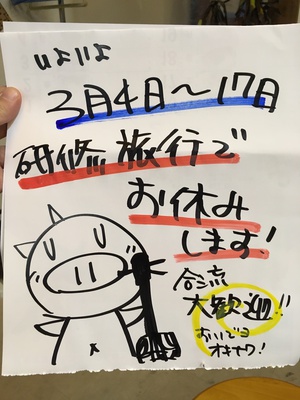 いよいよ
3月4日〜17日
研修旅行で
お休み
します!
合流
大歓迎!!
おいでよ
オキナワ!